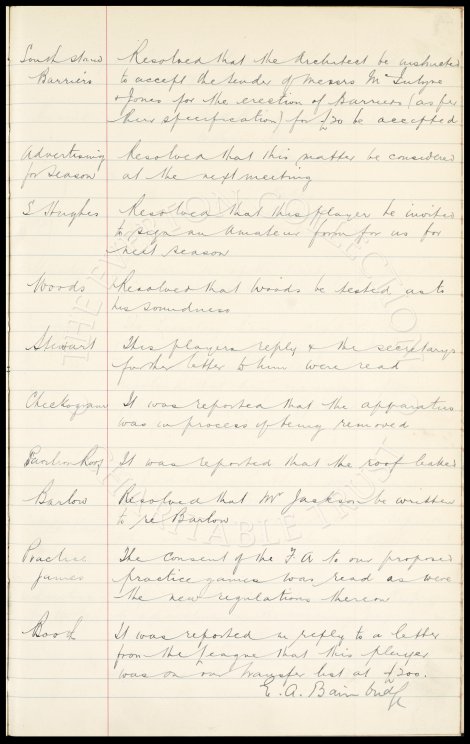 South stand Resolved that the Architect be instructed
Barriers to accept the tender of Messrs Mc Intyre
& Jones for the erection of Barriers (as per
their specification) for £20 be accepted
Advertising Resolved that this matter be considered
for Season at the next meeting
S Hughes Resolved that this player be invited
to sign an Amateur form for us for
next season
Woods Resolved that Woods be tested as to
his soundness
Stewart This players reply & the secretarys
further letter to him were read
Checkograph It was reported that the apparatus
was in process of being removed
Pavilion Roof It was reported that the roof leaked
Barlow Resolved that Mr Jackson be written
to re Barlow
Practise The consent of the F A to our proposed
games practice games was read as were
the new regulations thereon
Booth It was reported in reply to a letter
from the League that this player
was on our transfer list at £200.
E. A. Bainbridge
THE EVERTON COLLECTION
CHARITABLE TRUST